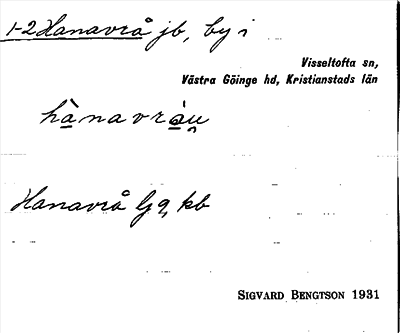 1-2 Hanavrå jb, by i
Visseltofta sn,
Västra Göinge hd, Kristianstads län
hànavráu̯
Hanavrå lj 9, kb
SIGVARD BENGTSON 1931